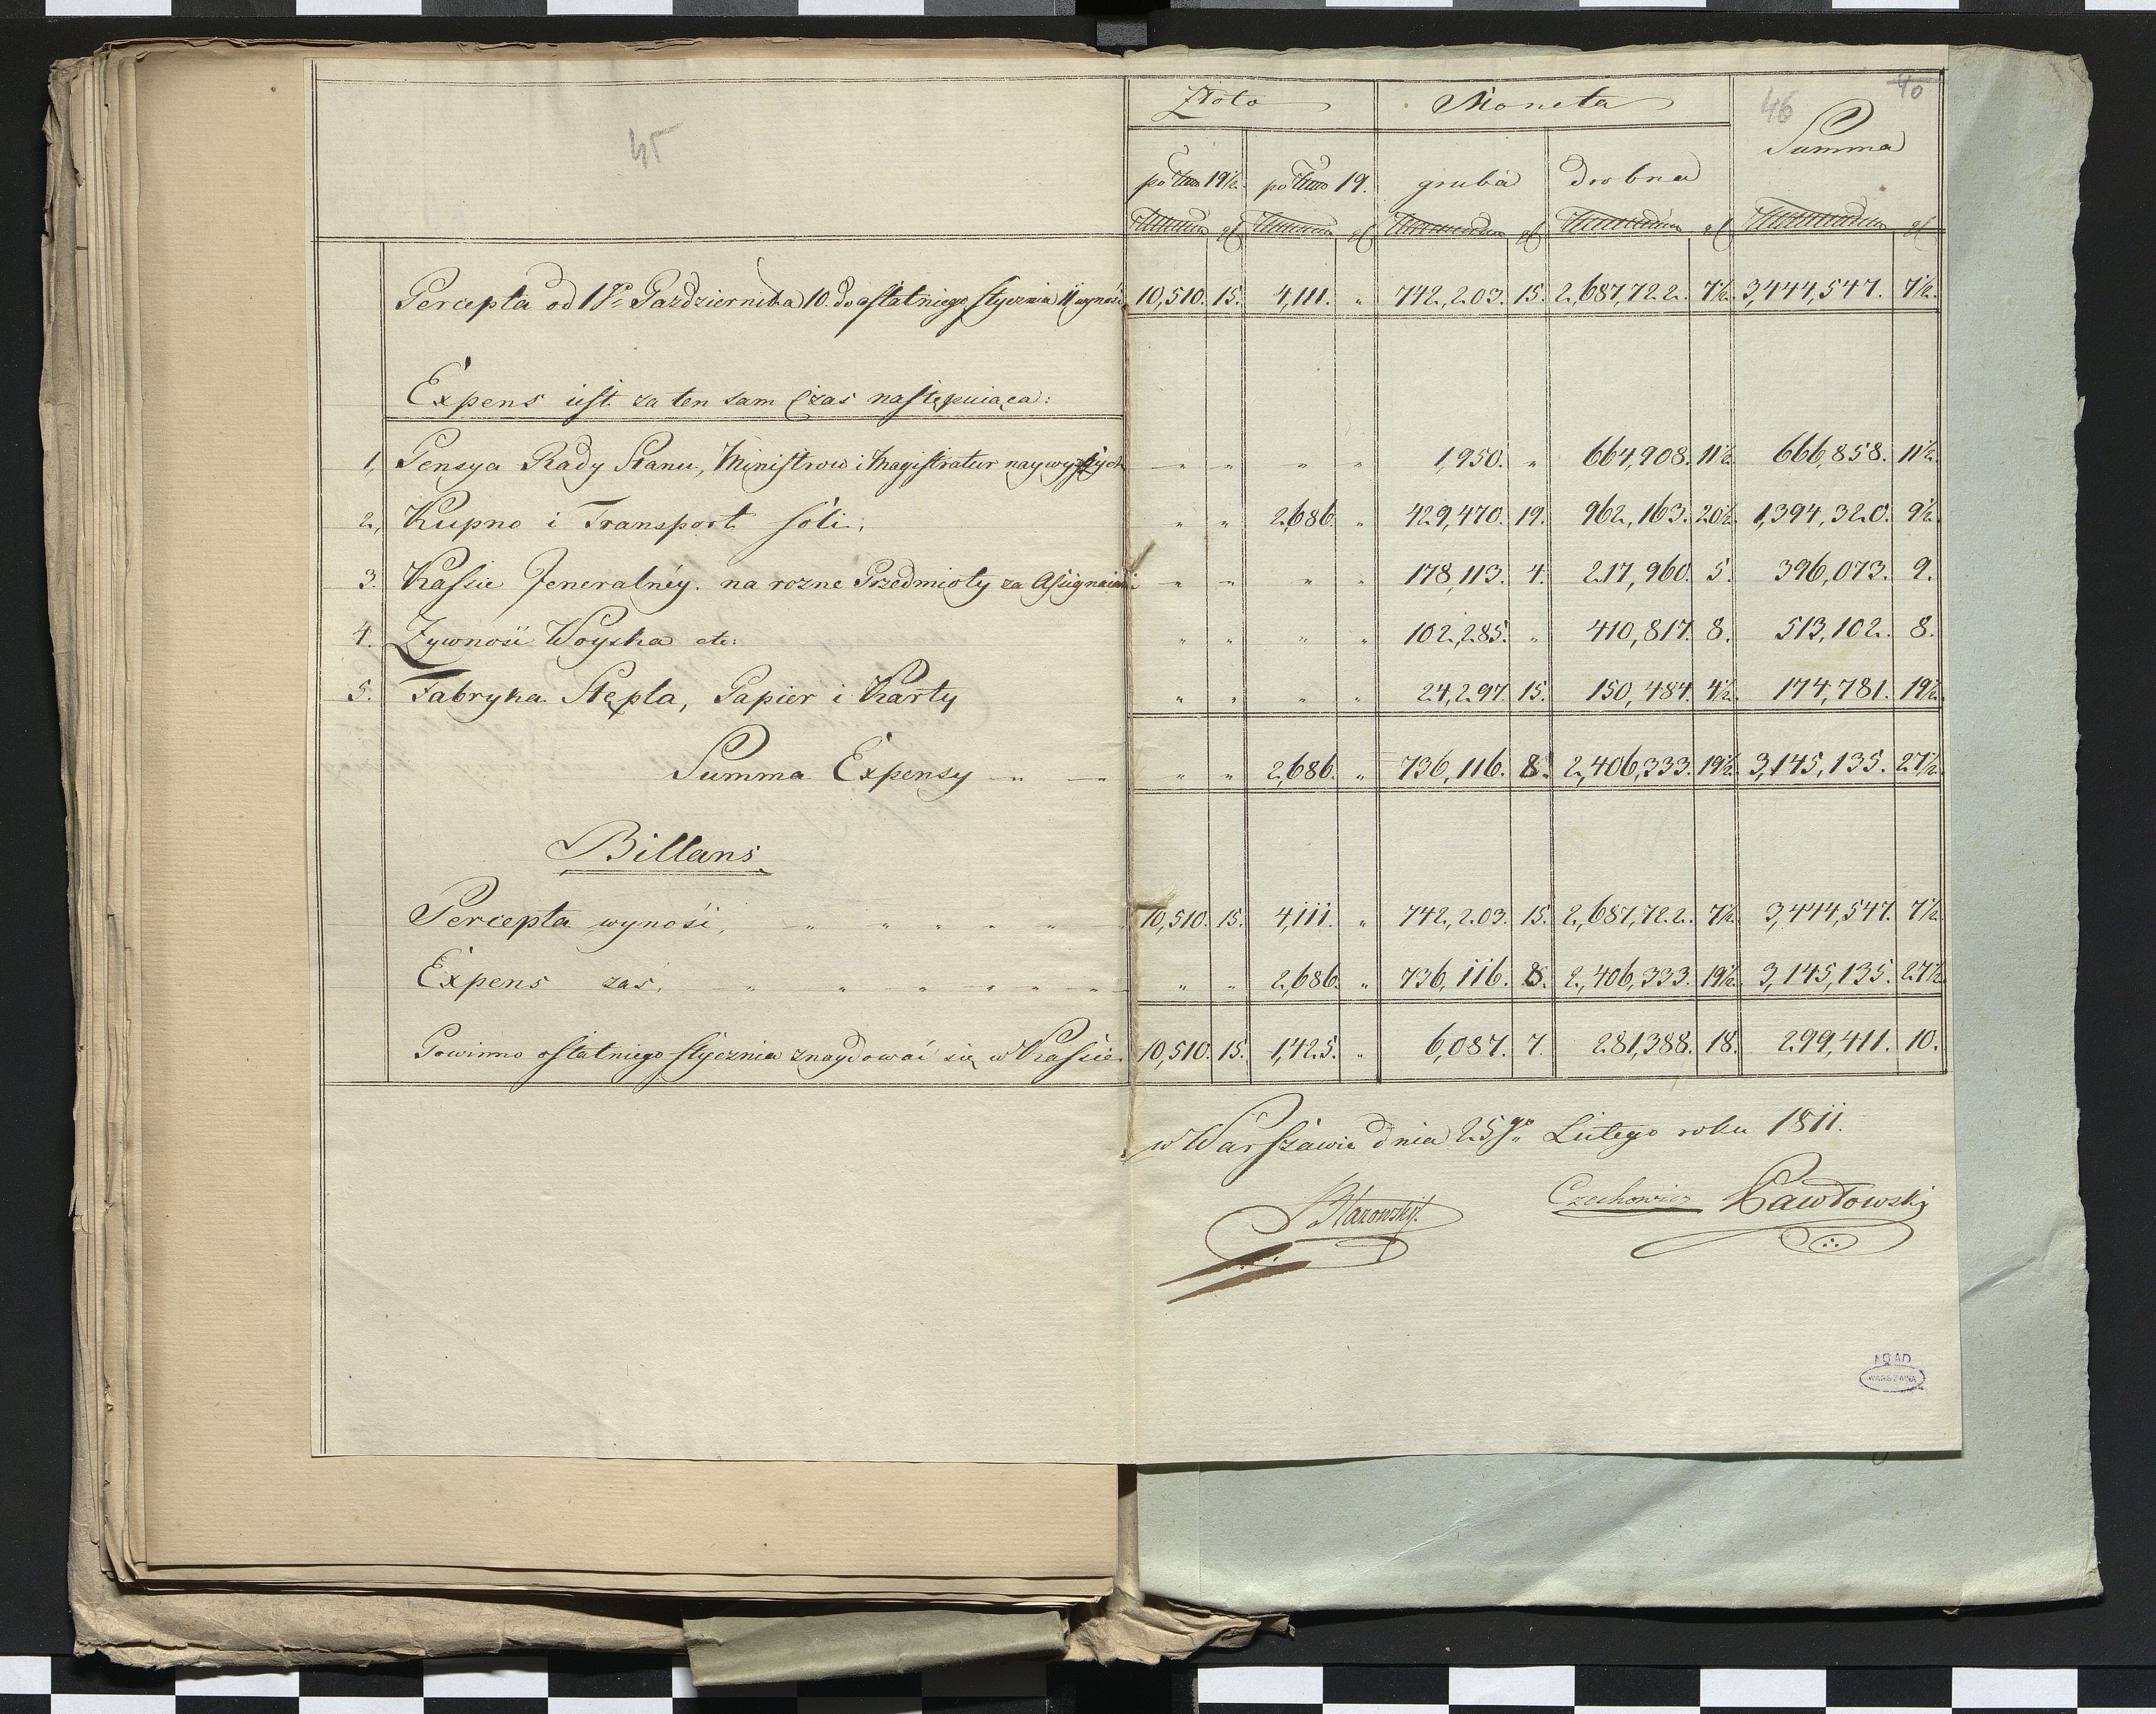 45
Złoto Moneta 46 40
Summa
po 19½. po 19. gruba drobna
gl gl gl gl gl
Percepta od 1go Pazdziernika 10. do ostatniego stycznia 11 wynosi 10,510. 15. 4,111. " 742,203. 15. 2,687,722. 7½. 3,444,547. 7½.
Expens iest za ten sam Czas następuiąca:
1, Pensya Rady Stanu, Ministrow i Magistratur naywyższych " " " " 1,950. " 664,908. 11½. 666,858. 11½.
2, Kupno i Transport soli; " " 2,686. " 429,470. 19. 962,163. 20½. 1,394,320. 9½.
3. Kassie Jeneralnéy. na rozne Przedmioty za " " " " 178,113. 4. 217,960. 5. 396,073. 9.
4. Zywność Woyska etc: " " " " 102,285. " 410,817. 8. 513,102. 8.
5. Fabryka Stępla, Papier i Karty " " " " 24,297. 15. 150,484. 4½. 174,781. 19½.
Summa Expensy " " " " 2,686. " 736,116. 8. 2,406,333. 19½. 3,145,135. 27½.
Billans
Percepta wynosi, " " " " " " 10,510. 15. 4,111. " 742,203. 15. 2,687,722. 7½. 3,444,547. 7½.
Expens zaś, " " " " " " " " " 2,686. " 736,116. 8. 2,406,333. 19½. 3,145,135. 27½.
Powinno ostatniego stycznia znaydować się w Kassie. 10,510. 15. 1,425. " 6,087. 7. 281,388. 18. 299,411. 10.
w Warszawie dnia 25go Lutego roku 1811.
Czechowicz Pawłowski
AGAD
WARSZAWA